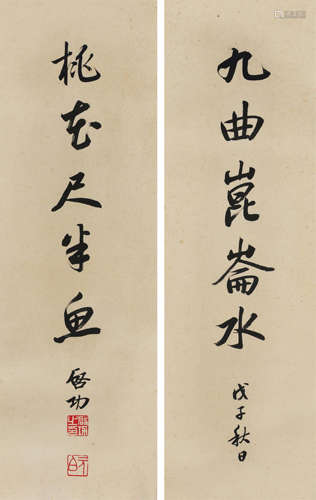 九曲崑崙水
戊子秋日
桃花尺半魚
啓功